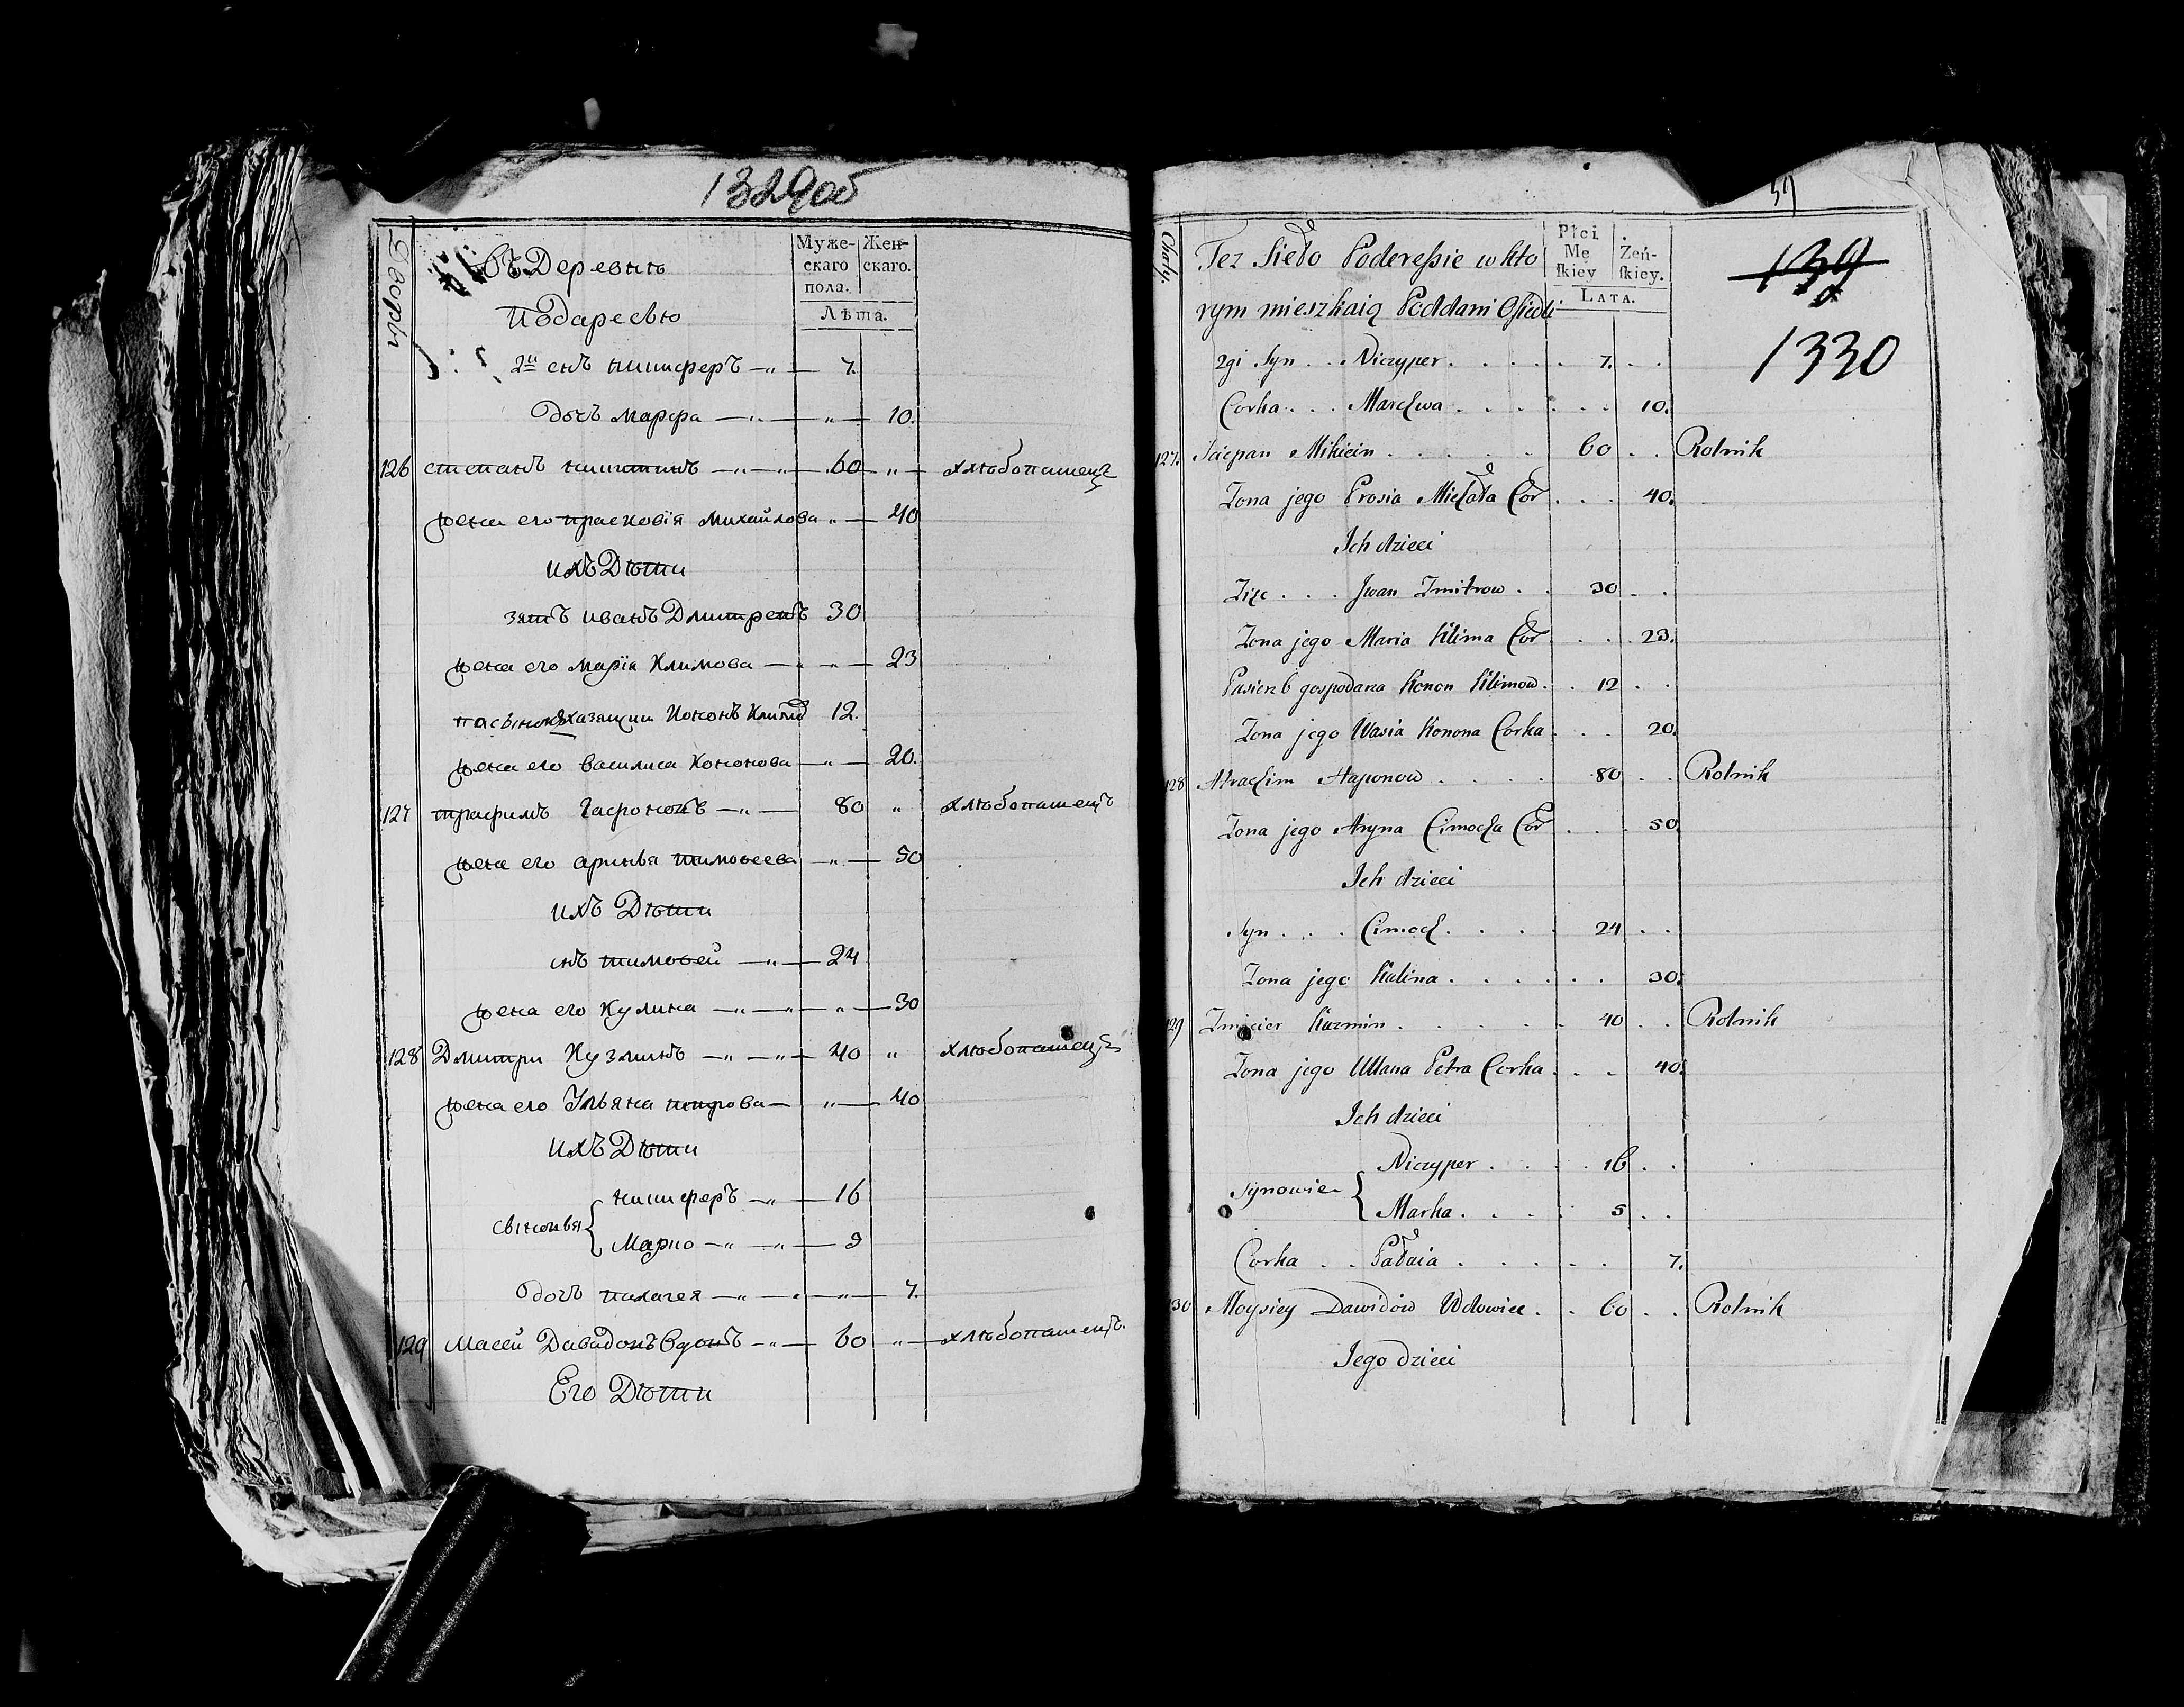 1329об
Дворы
Въ Деревнѣ
Подаресью
Муже-
скаго
пола.
Жен-
скаго.
Лѣта.
2й снъ ничиферъ — „ — 7.
дочь марфа — „ — „ — 10.
126 степанъ никитинъ — „ — „ — 60 — „ — хлѣбопашецъ
жена его прасковія михайлова „ — 40
ихъ Дѣти
зять иванъ Дмитренъ 30
жена его марія Климова — „ — „ — 23
пасынокъ хазяции Кононъ Климов 12.
жена его василиса Кононова — „ — 20.
127 трафимъ Гафоновъ — „ — 80 „ хлѣбопашецъ
жена его аринья тимовеева — „ — 50
ихъ Дѣти
снъ тимовей — „ — 24
жена его Кулина — „ — „ — „ — 30
128 Дмитри Кузминъ — „ — „ — 40 „ хлѣбопашецъ
жена его Ульяна петрова — „ — 40
ихъ Дѣти
ничиферъ — „ — 16
сыновья {
Марко — „ — „ — 9
дочь палагея — „ — „ — „ — 7.
129 Масей Давидовъ Вдовъ — „ — 60 „ — хлѣбопашецъ.
Его Дѣти
39
Chaty.
Tez Sieło Poderessie w kto
rym mieszkaią Poddani Osiedli
Płci
Mę
skiey
Żeń-
skiey.
LATA.
139
1330
2gi Syn . . Niczyper . . . . . 7. . .
Corka . . . Marchwa . . . . . . . 10.
127. Sciepan Mikicin . . . . . 60 . . Rolnik
Zona jego Prosia Michała Cor . . . 40.
Ich dzieci
Zięc . . . Jwan Zmitrow . . 30 . .
Zona jego Maria Klima Cor . . . 23.
Pasierb gospodarza Konon Klimow . . 12 . .
Zona jego Wasia Konona Corka . . . 20.
128 Atrachim Haponow . . . . 80 . . Rolnik
Zona jego Aryna Cimocha Cor . . . 50
Ich dzieci
Syn . . . Cimoch . . . . 24 . .
Zona jego Kulina . . . . . . 30.
129 Zmicier Kuzmin . . . . . . 40 . . Rolnik
Zona jego Ullana Petra Corka . . . 40.
Ich dzieci
Niczyper . . . . 16 . .
Synowie {
Marka . . . . 5 . .
Corka . . Pałaia . . . . . . 7.
130 Moysiey Dawidów Wdowiec . . 60 . . Rolnik
Jego dzieci